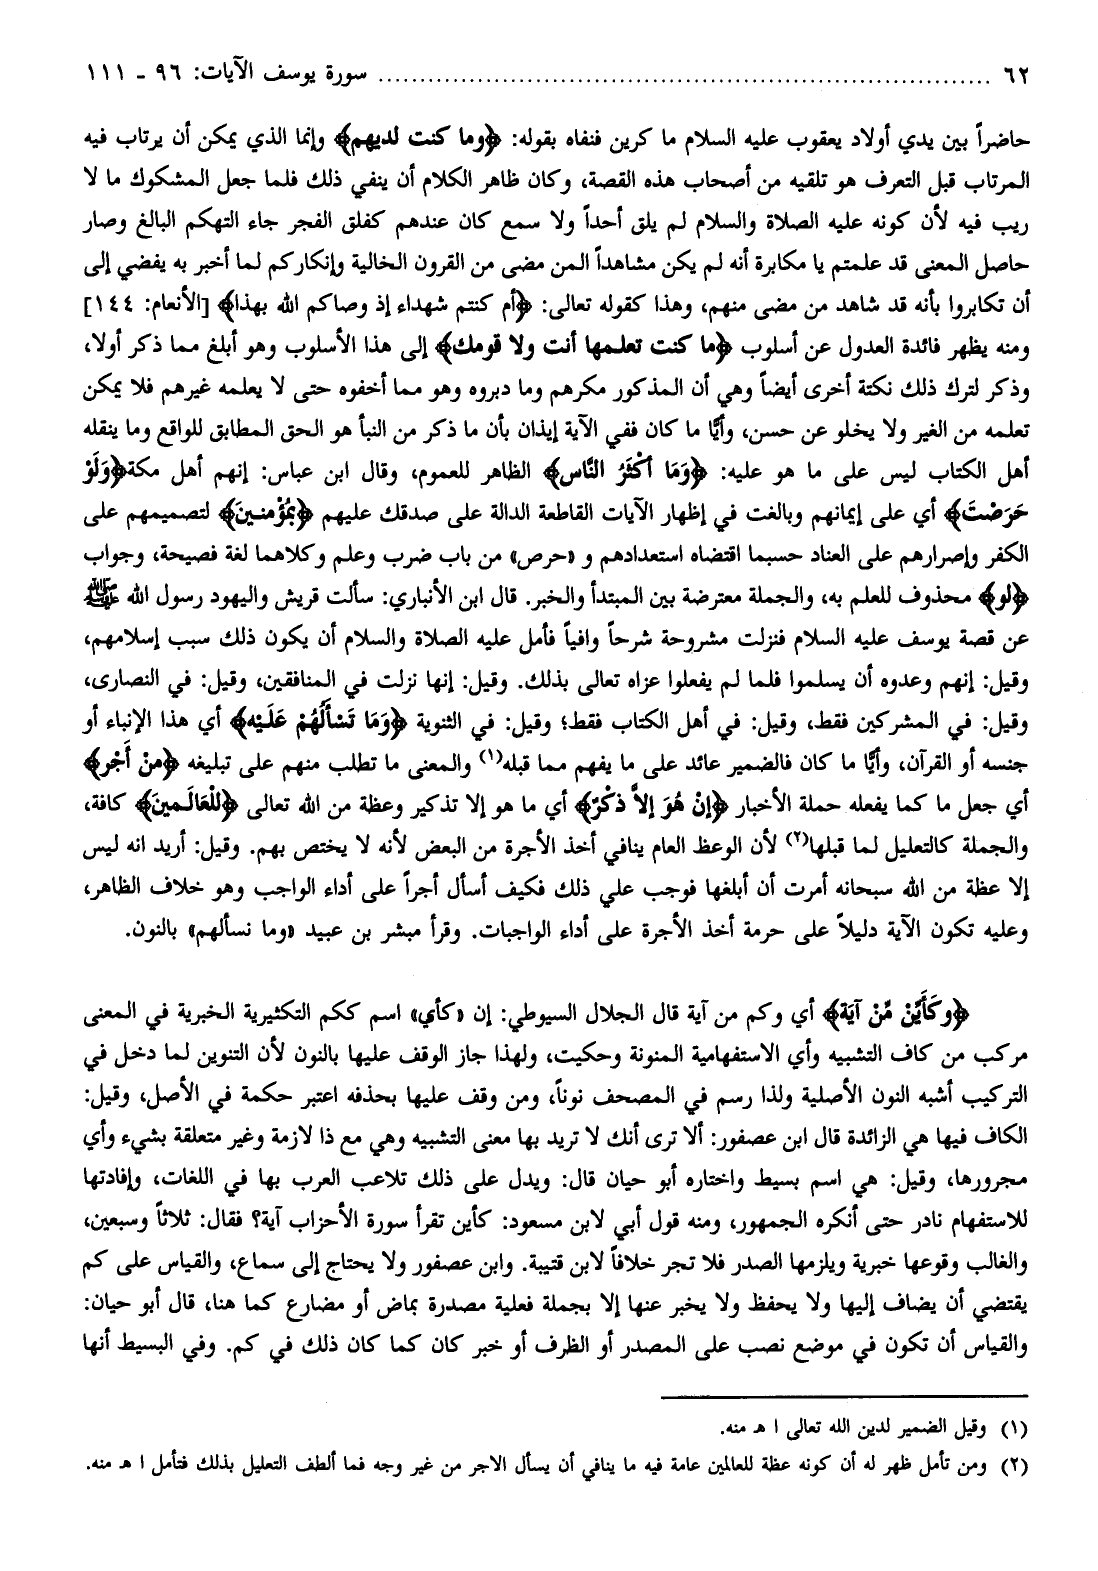 ٦٢ ........ سورة يوسف الآيات: ٩٦ ـ ١١١
حاضراً بين يدي أولاد يعقوب عليه السلام ما كرين فنفاه بقوله: ﴿وما كنت لديهم﴾ وإنما الذي يمكن أن يرتاب فيه
المرتاب قبل التعرف هو تلقيه من أصحاب هذه القصة، وكان ظاهر الكلام أن ينفي ذلك فلما جعل المشكوك ما لا
ريب فيه لأن كونه عليه الصلاة والسلام لم يلق أحداً ولا سمع كان عندهم كفلق الفجر جاء التهكم البالغ وصار
حاصل المعنى قد علمتم يا مكابرة أنه لم يكن مشاهداً المن مضى من القرون الخالية وإنكاركم لما أخبر به يفضي إلى
أن تكابروا بأنه قد شاهد من مضى منهم، وهذا كقوله تعالى: ﴿أم كنتم شهداء إذ وصاكم الله بهذا﴾ [الأنعام: ١٤٤]
ومنه يظهر فائدة العدول عن أسلوب ﴿ما كنت تعلمها أنت ولا قومك﴾ إلى هذا الأسلوب وهو أبلغ مما ذكر أولا،
وذكر لترك ذلك نكتة أخرى أيضاً وهي أن المذكور مكرهم وما دبروه وهو مما أخفوه حتى لا يعلمه غيرهم فلا يمكن
تعلمه من الغير ولا يخلو عن حسن، وأيًّا ما كان ففي الآية إيذان بأن ما ذكر من النبأ هو الحق المطابق للواقع وما ينقله
أهل الكتاب ليس على ما هو عليه: ﴿وَمَا أَكْثَرُ النَّاس﴾ الظاهر للعموم، وقال ابن عباس: إنهم أهل مكة﴿وَلَوْ
حَرَصْتَ﴾ أي على إيمانهم وبالغت في إظهار الآيات القاطعة الدالة على صدقك عليهم ﴿بِمُؤْمنينَ﴾ لتصميمهم على
الكفر وإصرارهم على العناد حسبما اقتضاه استعدادهم و «حرص» من باب ضرب وعلم وكلاهما لغة فصيحة، وجواب
﴿لو﴾ محذوف للعلم به، والجملة معترضة بين المبتدأ والخبر. قال ابن الأنباري: سألت قريش واليهود رسول الله ﷺ
عن قصة يوسف عليه السلام فنزلت مشروحة شرحاً وافياً فأمل عليه الصلاة والسلام أن يكون ذلك سبب إسلامهم،
وقيل: إنهم وعدوه أن يسلموا فلما لم يفعلوا عزاه تعالى بذلك. وقيل: إنها نزلت في المنافقين، وقيل: في النصارى،
وقيل: في المشركين فقط، وقيل: في أهل الكتاب فقط؛ وقيل: في الثنوية ﴿وَمَا تَسْأَلُهُمْ عَلَيْه﴾ أي هذا الإنباء أو
جنسه أو القرآن، وأيًّا ما كان فالضمير عائد على ما يفهم مما قبله(١) والمعنى ما تطلب منهم على تبليغه ﴿مِنْ أَجْر﴾
أي جعل ما كما يفعله حملة الأخبار ﴿إنْ هُوَ إلاَّ ذكْرٌ﴾ أي ما هو إلا تذكير وعظة من الله تعالى ﴿للْعَالَمينَ﴾ كافة،
والجملة كالتعليل لما قبلها(٢) لأن الوعظ العام ينافي أخذ الأجرة من البعض لأنه لا يختص بهم. وقيل: أريد انه ليس
إلا عظة من الله سبحانه أمرت أن أبلغها فوجب علي ذلك فكيف أسأل أجراً على أداء الواجب وهو خلاف الظاهر،
وعليه تكون الآية دليلاً على حرمة أخذ الأجرة على أداء الواجبات. وقرأ مبشر بن عبيد «وما نسألهم» بالنون.
﴿وكَأَيِّنْ مِّنْ آيَة﴾ أي وكم من آية قال الجلال السيوطي: إن «كأي» اسم ككم التكثيرية الخبرية في المعنى
مركب من كاف التشبيه وأي الاستفهامية المنونة وحكيت، ولهذا جاز الوقف عليها بالنون لأن التنوين لما دخل في
التركيب أشبه النون الأصلية ولذا رسم في المصحف نوناً، ومن وقف عليها بحذفه اعتبر حكمة في الأصل، وقيل:
الكاف فيها هي الزائدة قال ابن عصفور: ألا ترى أنك لا تريد بها معنى التشبيه وهي مع ذا لازمة وغير متعلقة بشيء وأي
مجرورها، وقيل: هي اسم بسيط واختاره أبو حيان قال: ويدل على ذلك تلاعب العرب بها في اللغات، وإفادتها
للاستفهام نادر حتى أنكره الجمهور، ومنه قول أبي لابن مسعود: كأين تقرأ سورة الأحزاب آية؟ فقال: ثلاثاً وسبعين،
والغالب وقوعها خبرية ويلزمها الصدر فلا تجر خلافاً لابن قتيبة. وابن عصفور ولا يحتاج إلى سماع، والقياس على كم
يقتضي أن يضاف إليها ولا يحفظ ولا يخبر عنها إلا بجملة فعلية مصدرة بماض أو مضارع كما هنا، قال أبو حيان:
والقياس أن تكون في موضع نصب على المصدر أو الظرف أو خبر كان كما كان ذلك في كم. وفي البسيط أنها
(١) وقيل الضمير لدين الله تعالى ا هـ منه.
(٢) ومن تأمل ظهر له أن كونه عظة للعالمين عامة فيه ما ينافي أن يسأل الاجر من غير وجه فما ألطف التعليل بذلك فتأمل ا هـ منه.